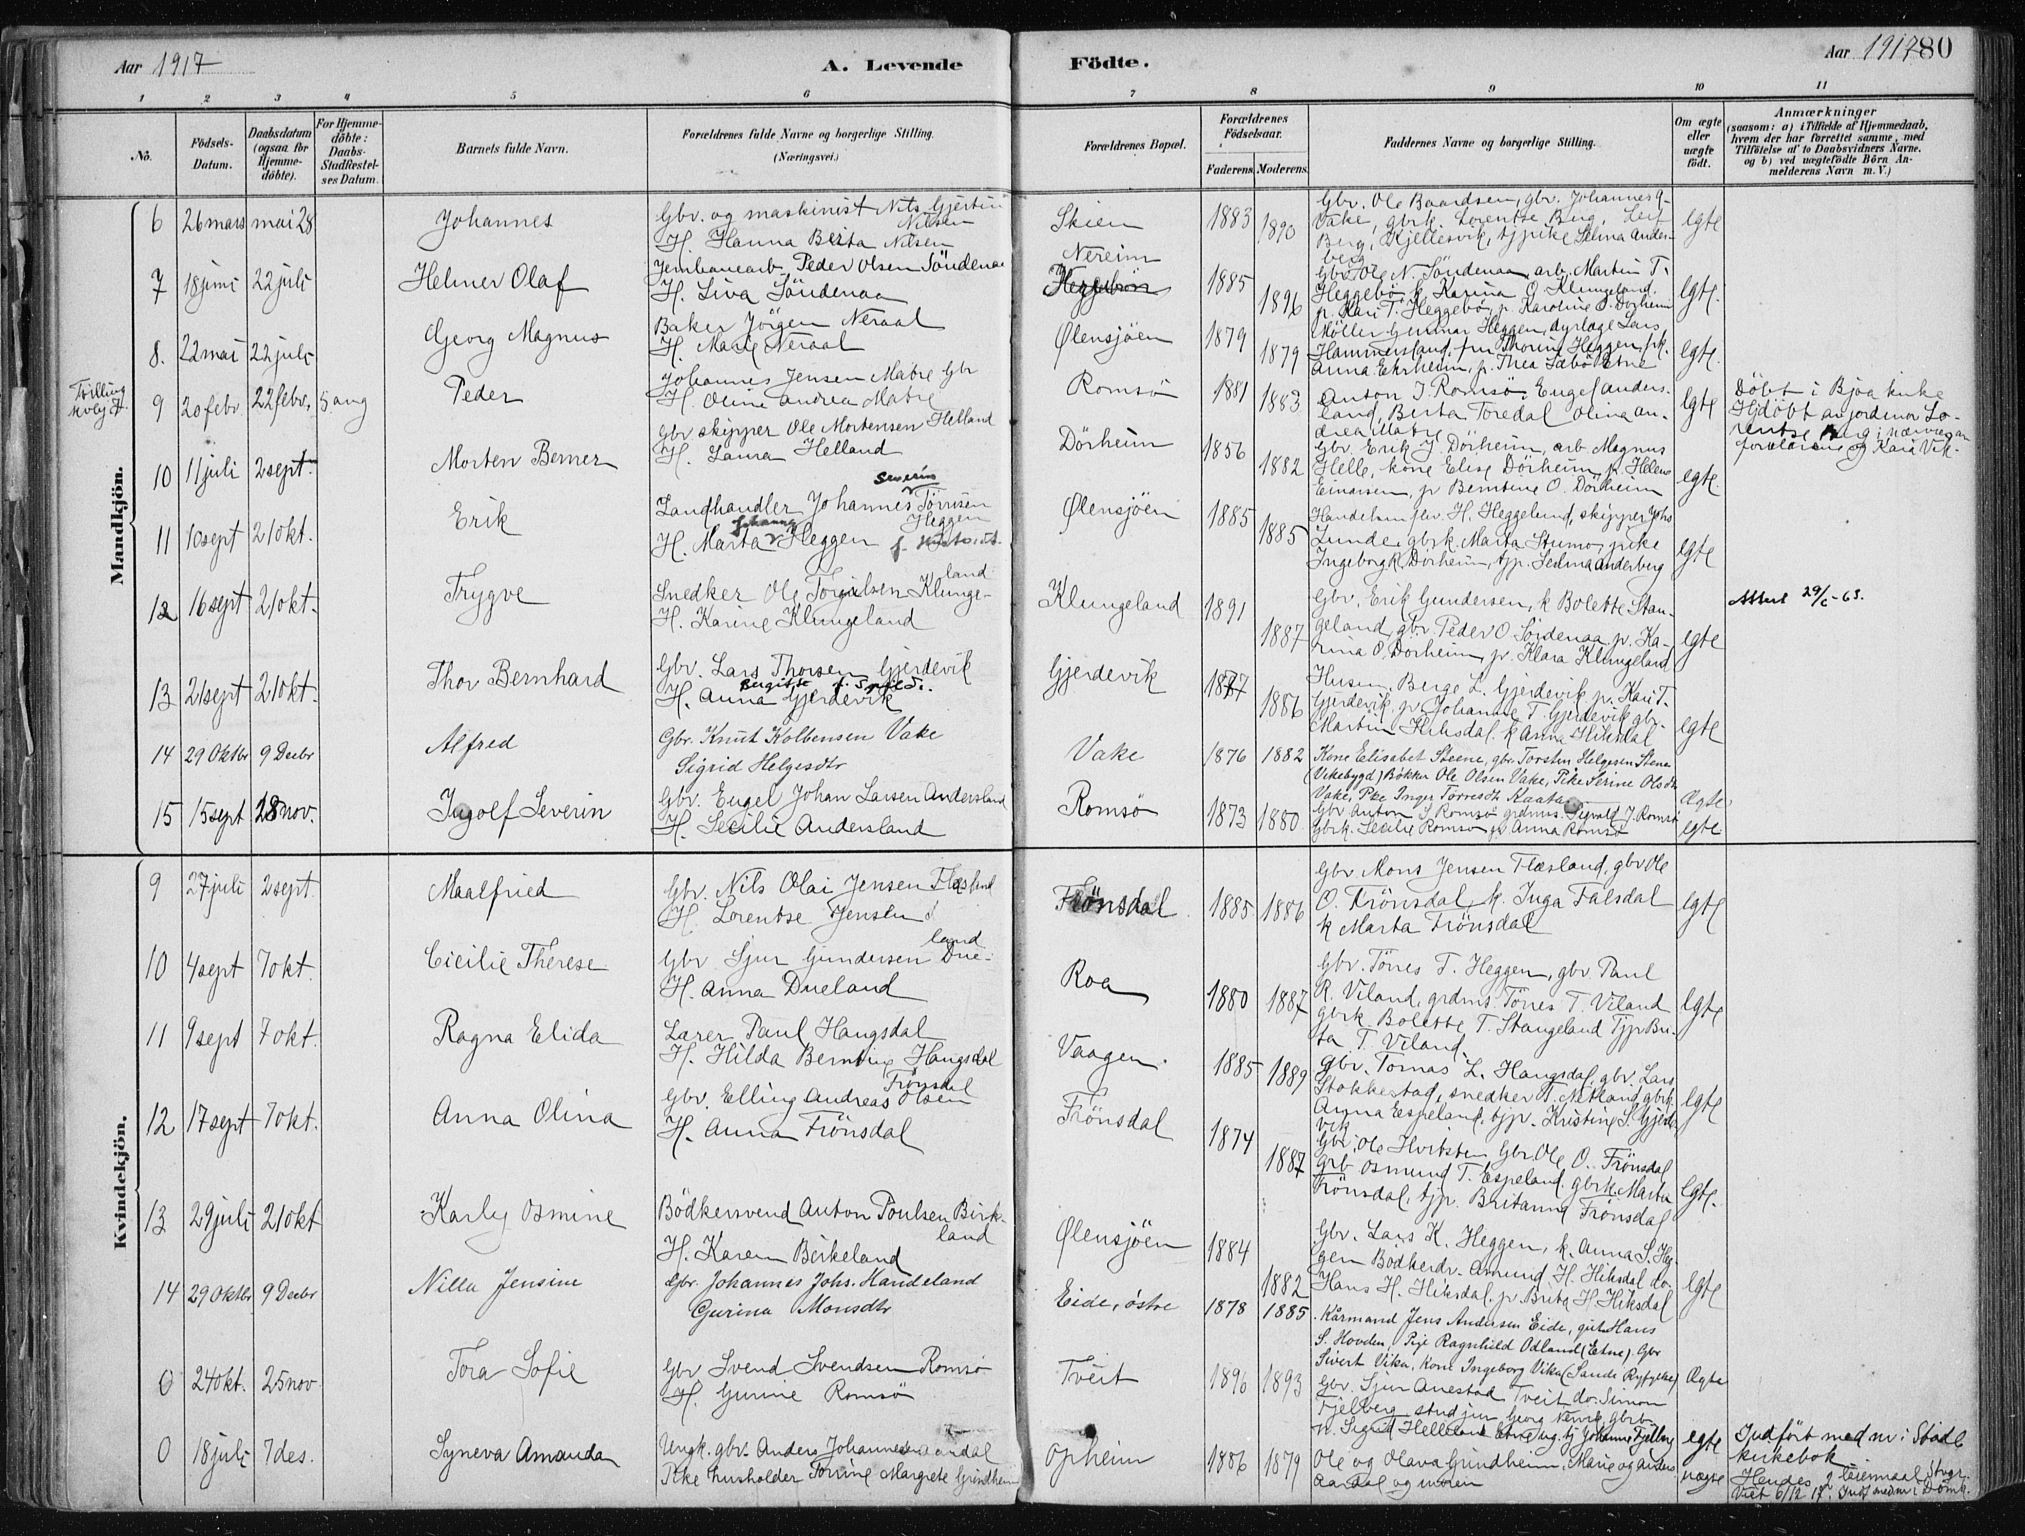 Aar 1917
A. Levende
Födte.
Aar 1917
80
1 2 3 4 5 6 7 8 9 10 11
No.
Födsels-Datum.
Daabsdatum (ogsaa for Hjemme-döbte).
For Hjemme-döbte: Daabs-Stadfæstel-ses Datum.
Barnets fulde Navn.
Forældrenes fulde Navne og borgerlige Stilling. (Næringsvei.)
Forældrenes Bopæl.
Forældrenes Födselsaar.
Faderens Moderens.
Faddernes Navne og borgerlige Stilling.
Om ægte eller uægte födt.
Anmærkninger
(saasom: a) i Tilfælde af Hjemmedaab, hvem der har forrettet samme, med Tilföielse af to Daabsvidners Navne. og b) ved uægtefödte Börn An-melderens Navn m. V.)
Mandkjön.
6 26 mars mai 28 Johannes
Gbr. og maskinist Nils Gjertin Nilsen
H. Hanna Berta Nilsen
Skien 1883 1890
Gbr. Ole Baardsen, gbr. Johannes G. Vake, gbrk. Lorentse Berg, Leif Berg, Kjellesvik, tj. pike Selma Anderberg
egte
7 18 juni 22 juli Helmer Olaf
Jernbanearb. Peder Olsen Söndenaa
H. Liva Söndenaa
Nereim
Heggebön
1885 1896
Gbr. Ole N. Söndenaa, arb. Martin T. Heggebö k. Karina O. Klungeland, p. Kari T. Heggebö, p. Karoline O. Dörheim
egte.
8. 22 mai 22 juli Georg Magnus
Baker Jörgen Neraal
H. Marie Neraal
Ølensjöen 1879 1879
Möller Gunnar Heggen, dyrlæge Lars Hammersland, fru Thorine Heggen, frk. Anna Ekrheim, p. Thea Sæbö Etne
egte.
Tvilling
9 20 febr. 22 febr. 5 aug Peder
Johannes Jensen Matre Gbr
H. Oline Andrea Matre
Romsö 1881 1883
Anton J. Romsö, Engel Andersland, Berta Toredal Olina Andrea Matre
egte
Döbt i Bjoa kirke
Hjdöbt av jordmor Lorentse Berg i nærvær av forældrene og Kari Vik.
10 11 juli 2 sept. Morten Berner
Gbr skipper Ole Mortensen Helland
H. Laura Helland
Dörheim 1856 1882
Gbr. Erik J. Dörheim, arb Magnus Helle, kone Elise Dörheim, p. Helene Einarsen, p Berntine O. Dörheim
egte
11 10 sept 21 okt. Erik
Landhandler Johannes Severin Törrisen Heggen
H. Marta Johanna Heggen
Ølensjöen 1885 1885
Handelsm. H. Heggelund, skipper Johs Lunde, gbrk. Marta Stumo, pike Ingeborg K. Dörheim, tjp. Selma Anderberg
egte
12 16 sept 21 okt. Trygve
Snedker Ole Torgilsen Klungeland
H. Karine Klungeland
Klungeland 1891 1887
Gbr. Erik Gundersen, k Bolette Stangeland, gbr. Peder O. Söndenaa, p. Karina O. Dörheim, p. Klara Klungeland
egte
Attest 29/6-63.
13 21 sept 21 okt. Thor Bernhard
Gbr. Lars Thorsen Gjerdevik
H. Anna Bergitte Gjerdevik
Gjerdevik 1886
Husm. Berge L. Gjerdevik p. Kari T. Gjerdevik, p. Johanne T. Gjerdevik gbr. Martin Hiksdal k Anna Hiksdal
egte
14 29 Oktbr 9 Decbr Alfred
Gbr. Knut Kolbensen Vake
Sigrid Helgesdtr
Vake 1876 1882
Kone Elisabet Steene, gbr Torstin Helgesen Stene (Vikebygd) Bökker Ole Olsen Vake, Pike Serine Olsdtr Vake, Pke Inger Törresdtr Kaata
Ægte
15 15 sept 18 nov. Ingolf Severin
Gbr. Engel Johan Larsen Andersland
H. Secilie Andersland
Romsö 1873 1880
Gbr Anton J. Romsö grdms. Sigvald J. Romsö Gbrk. Secilie Romsö p Anna Romsö
egte
Kvindekjön.
9 27 juli 2 sept. Maalfried
Gbr. Nils Olai Jensen Flæsland
H. Lorentse Jensen
Frönsdal 1885 1886
Gbr Mons Jensen Flæsland, gbr Ole O. Frönsdal, k. Inga Falsdal k Marta Frönsdal
egte
10 4 sept 7 okt. Cicilie Therese
Gbr Sjur Gundersen Dueland
H. Anna Dueland
Roa 1880 1887
Gbr. Törres T. Heggen, gbr. Paul R. Viland, grdms. Törres T. Viland gbrk Bolette T. Stangeland Tjp Berta T. Viland
egte
11 9 sept 7 okt. Ragna Elida
Lærer Paul Haugsdal
H. Hilda Berntine Haugsdal
Vaagen. 1885 1889
Gbr. Tomas L. Haugsdal, gbr. Lars Stokkestad, snedker T. Netland, gbrk. Anna Espeland, tjp. Kristine S. Gjerdevik
egte
12 17 sept 7 okt. Anna Olina
Gbr. Elling Andreas Olsen Frönsdal
H. Anna Frönsdal
Frönsdal 1874 1887
Gbr. Ole Hvitsten Gbr Ole O. Frönsdal grb Osmund T. Espeland, gbrk. Marta Frönsdal, tjp. Britanna Frönsdal
egte.
13 29 juli 21 okt Karly Osmine
Bödkersvend Anton Poulsen Birkland
H. Karen Birkeland
Ølensjöen 1884 1882
Gbr. Lars K. Heggen, k. Anna S. Heggen Bödkerdr. Amund H. Hiksdal do. Hans H. Hiksdal. p. Brita H. Hiksdal
egte
14 29 Oktbr 9 Decbr Nilla Jensine
Gbr. Johannes Johs. Handeland
Gurina Monsdtr
Eide, østre 1878 1885
Kårmand Jens Andersen Eide, gut Hans S. Hovden, Pije Ragnhild Ødland (Etne). Gbr Sivert Vika, Kone Ingeborg Vika (Sande Ryfylke)
Ægte
0 24 okt. 25 nov Tora Sofie
Gbr Svend Svendsen Romsö
H. Gurine Romsö
Tveit 1890 1893
Gbr. Sjur Anestad Tveit do. Simon Fjelberg stud jur Georg
egte
Indfört med nr i Skold kirkebok
0 18 juli 7 des. Syneva Amanda
Ungk. gbr. Anders Johannes Aardal
Pike husholder Torine Margrete Grindheim
Opheim 1886 1879
Ole og Olava Grindheim, Marie og Anders Aardal og moren
uægte
Hendes 2 leiermaal